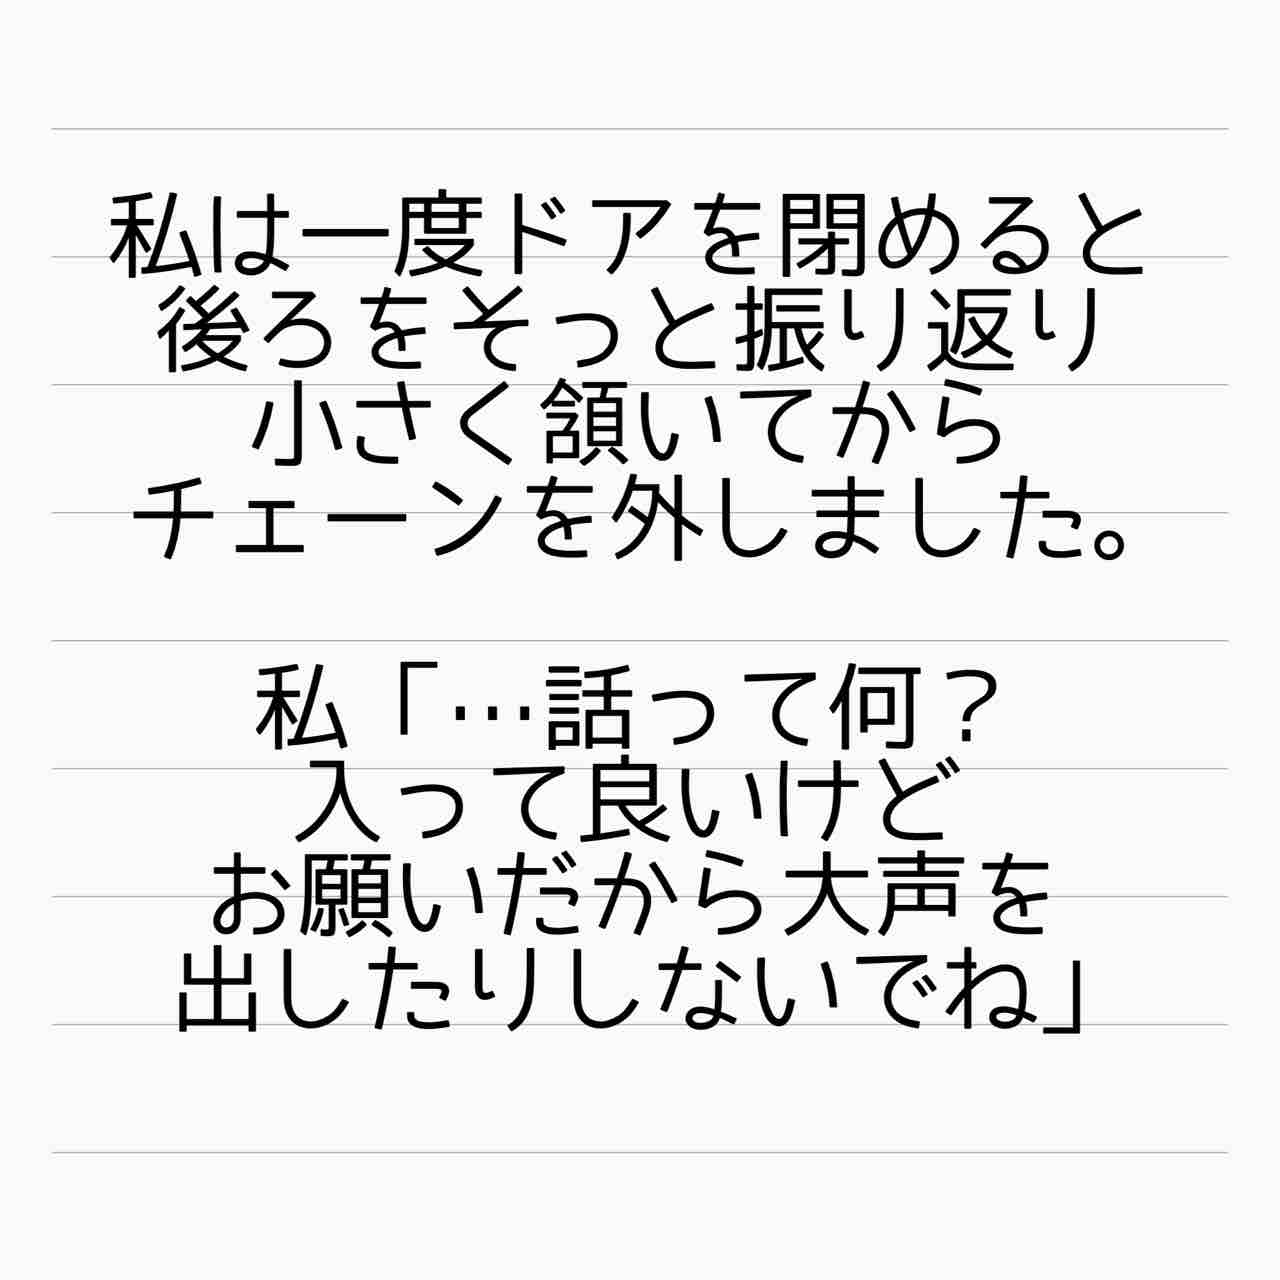 私は一度ドアを閉めると
後ろをそっと振り返り
小さく頷いてから
チェーンを外しました。
私「…話って何？
入って良いけど
お願いだから大声を
出したりしないでね」